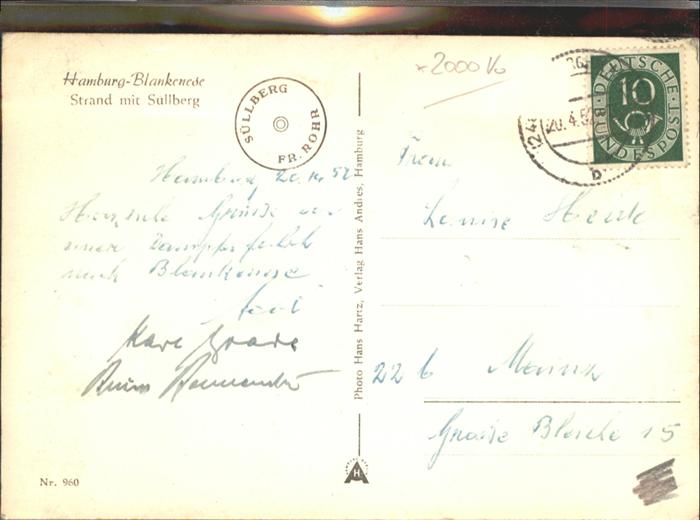 Hamburg-Blankenese
Strand mit Süllberg
SÜLLBERG
FR. ROHR
2000 Vo
DEUTSCHE
10
BUNDESPOST
20.4.5
b
Hamburg 20.4.52
Herzliche Grüße von
einer Dampferfahrt
nach Blankenese
Karl
Bruno
Photo Hans Hartz, Verlag Hans Andres, Hamburg
Frau
Louise
22 b Mainz
Große Bleiche 15
Nr. 960
H